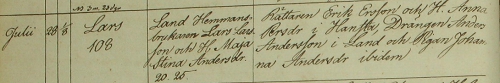 Julii 28 1/8 Lars 108
Land Hemmans-
brukaren Lars Lars-
son och H. Maja
Stina Andersdr.
20. 25.
Rättaren Erik Ersson och H. Anna
Persdr i Hansta, Drängen Anders
Andersson i Land och Pigan Johan-
na Andersdr ibidem